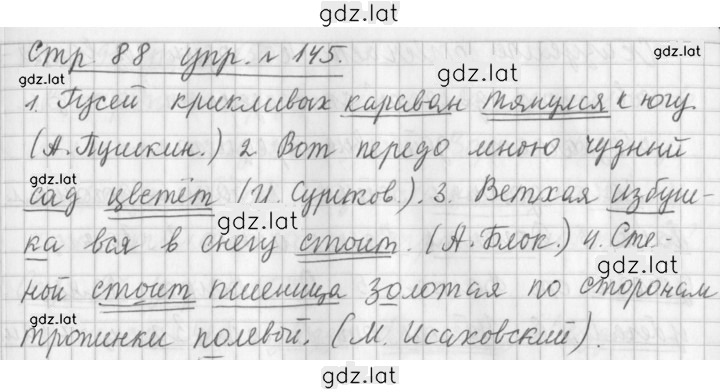 gdz.lat
Стр. 88 упр. № 145.
gdz.lat
gdz.lat
gdz.lat
1. Гусей крикливых караван тянулся к югу
(А. Пушкин.) 2. Вот передо мною чудный
gdz.lat
сад цветёт (И. Суриков.). 3. Ветхая избуш-
gdz.lat
ка вся в снегу стоит. (А. Блок.) 4. Сте-
gdz.lat
ной стоит пшеница золотая по сторонам
gdz.lat
тропинки полевой. (М. Исаковский).
gdz.lat